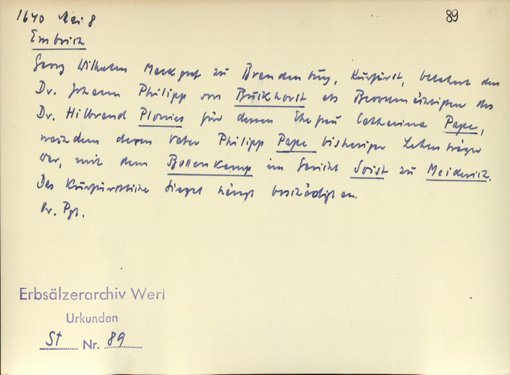 1640 Mai 8
89
Embrich
Georg Wilhelm Markgraf zu Brandenburg, Kurfürst, belehnt den
Dr. Johann Philipp von Bruchhorst als Bevollmächtigten des
Dr. Hilbrand Plonies für deren Ehefrau Catharina Pape,
nachdem deren Vater Philipp Pape bisheriger Lehensträger
war, mit dem Bollenkamp im Gericht Soist zu Meiderich.
Das Kurfürstliche Siegel hängt beschädigt an.
Or. Pgt.
Erbsälzerarchiv Werl
Urkunden
St Nr. 89